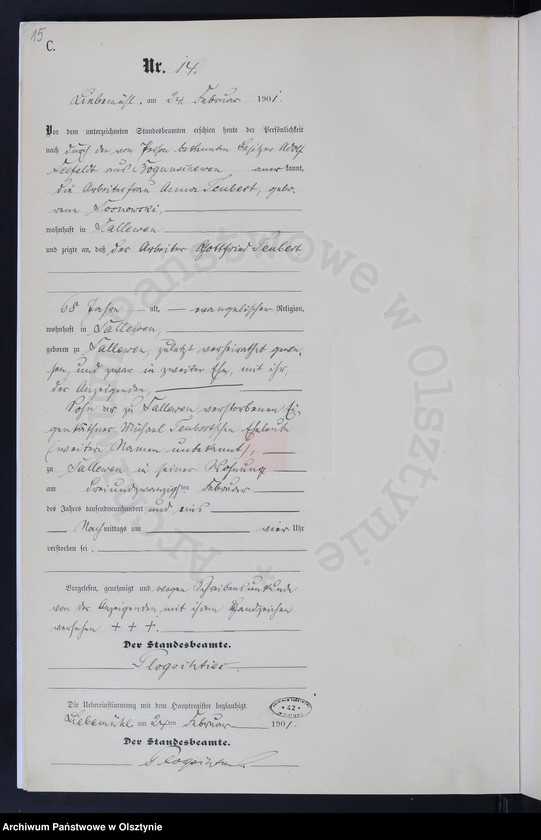 15
C.
Nr. 14.
Liebemühl, am 24. Februar 1901.
Vor dem unterzeichneten Standesbeamten erschien heute der Persönlichkeit
nach durch den von Person bekannten Besitzer Adolf
aus Bogunschewen anerkannt,
die Arbeiterfrau Anna Teubert, gebo-
rene Sosnowski,
wohnhaft in Tallewen
und zeigte an, daß der Arbeiter Gottfried Teubert
68 Jahre alt, evangelischer Religion,
wohnhaft in Tallewen,
geboren zu Tallewen, zuletzt verheirathet gewe-
sen, und zwar in zweiter Ehe, mit ihr
der Anzeigenden,
Sohn der zu Tallewen verstorbenen Ei-
genkäthner Michael Teubert'schen Eheleute
(weitere Namen unbekannt),
zu Tallewen in seiner Wohnung
am dreiundzwanzigsten Februar
des Jahres tausendneunhundert und eins
Nachmittags um vier Uhr
verstorben sei.
Vorgelesen, genehmigt und wegen Schreibensunkunde
von der Anzeigenden mit ihrem Handzeichen
versehen + + +.
Der Standesbeamte.
Die Uebereinstimmung mit dem Hauptregister beglaubigt.
Liebemühl am 24ten Februar 1901.
Der Standesbeamte.
42
Archiwum Państwowe w Olsztynie *
Archiwum Państwowe w Olsztynie